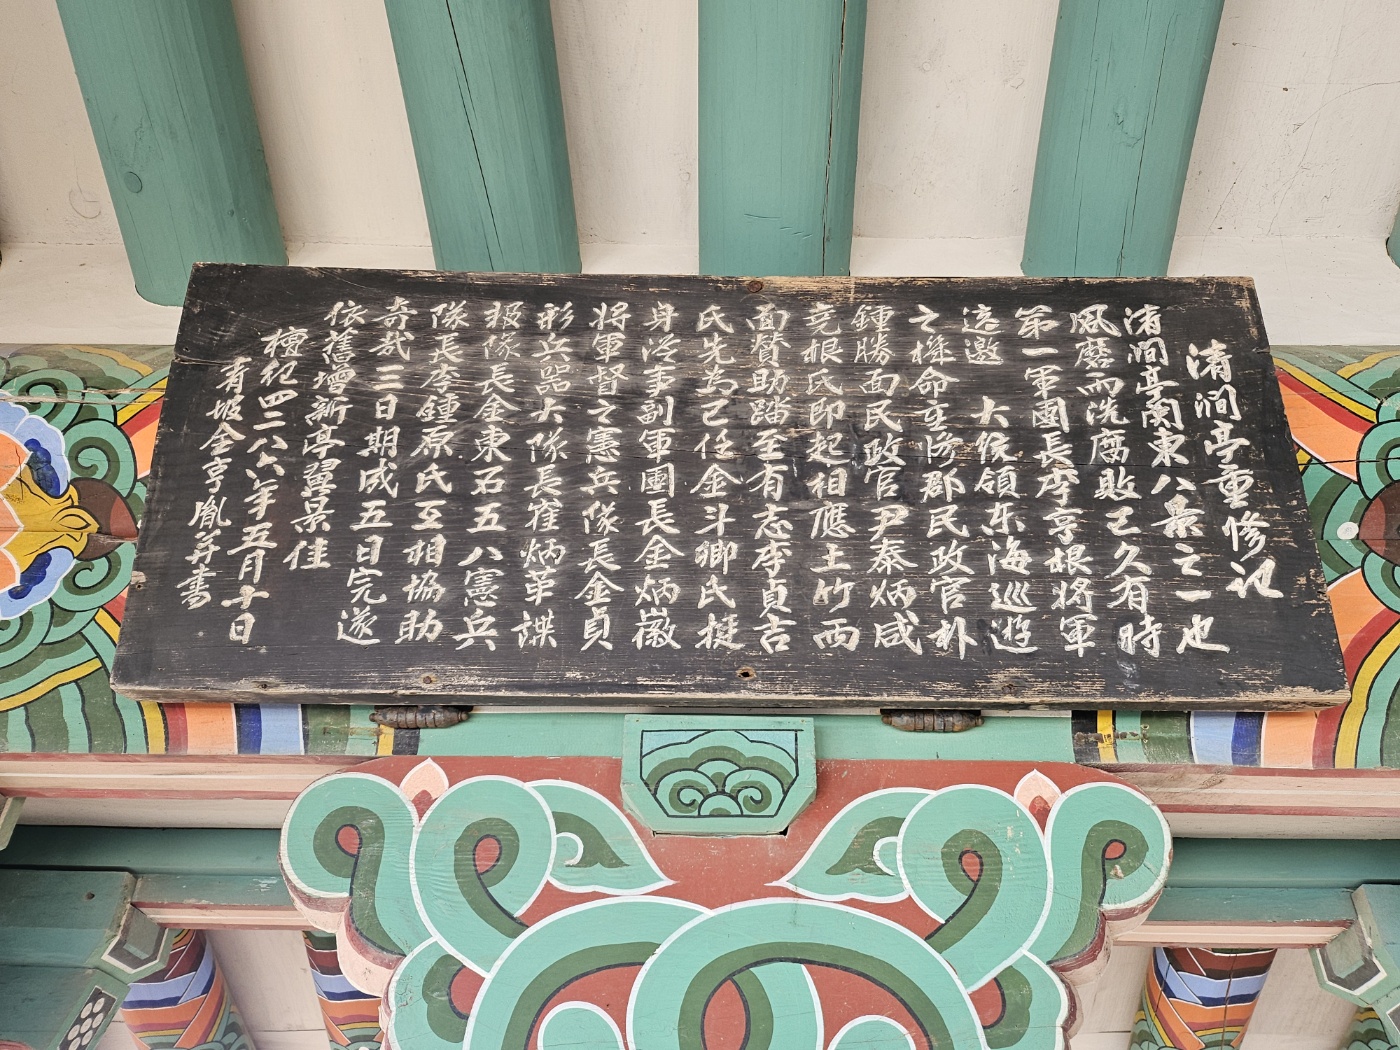 清澗亭重修記
淸澗亭關東八景之一也
風磨雨洗腐敗已久有時
第一軍團長李亨根將軍
這邀 大統領東海巡遊
之機命重修郡民政官朴
鍾勝面民政官尹泰炳咸
堯根氏卽起相應土竹面
面督助踏至有志李貞吉
氏先爲己任金斗卿氏挺
身從事副軍團長金炳徽
將軍督之憲兵隊長金貞
彩兵器大隊長崔炳革諜
报隊長金東石五八憲兵
隊長李鍾原氏互相協助
奇哉三日期成五日完遂
依舊增新亭翼景佳
檀紀四二八六年五月十日
靑坡金亨胤并書